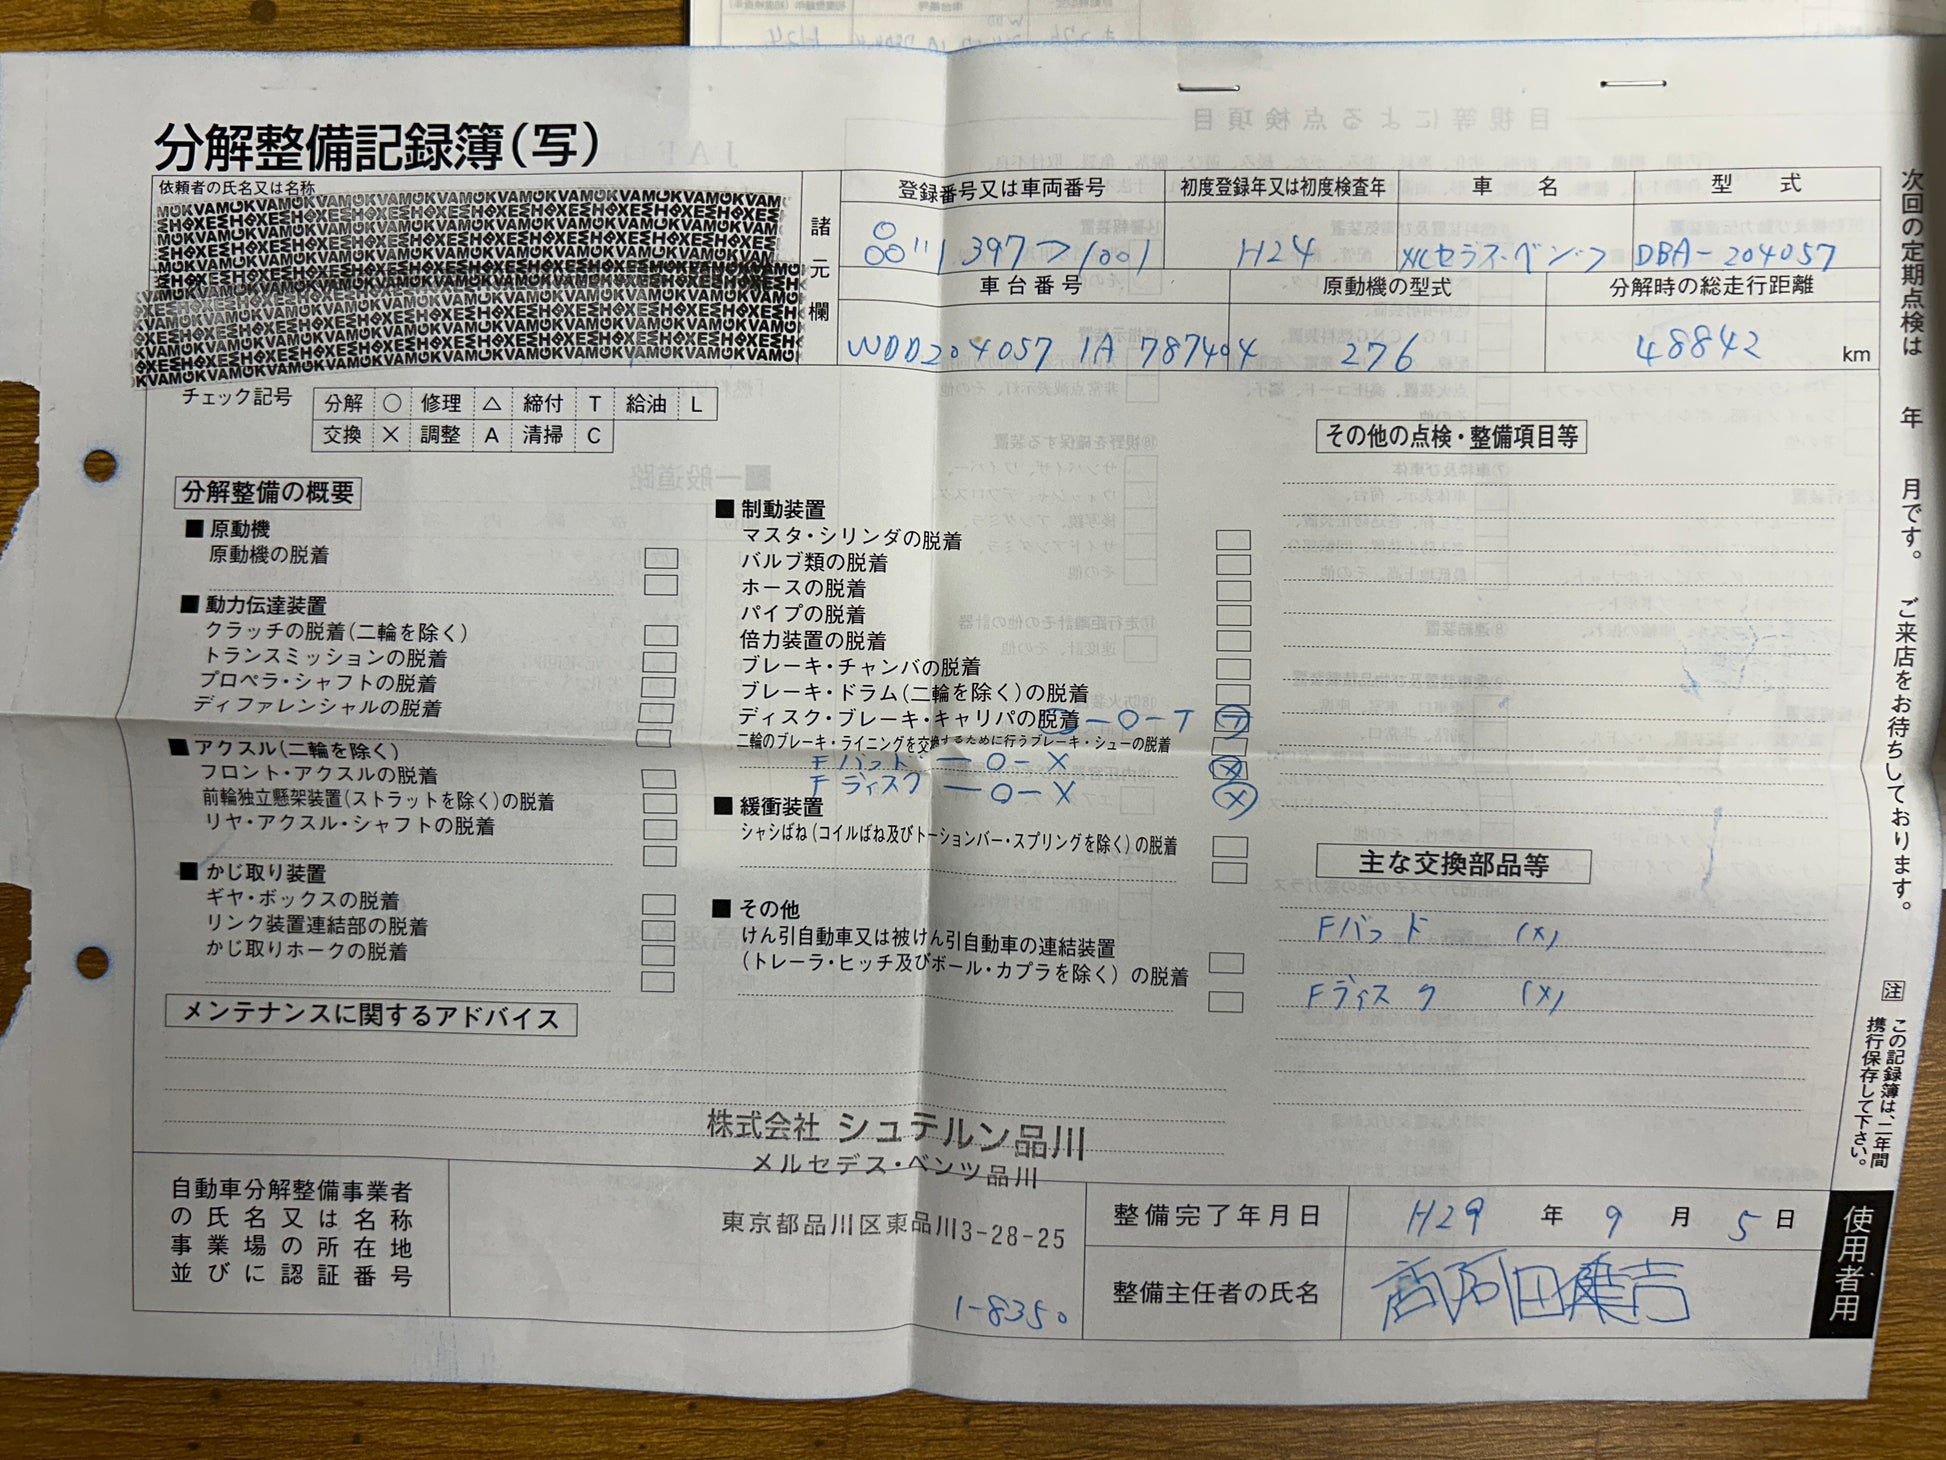 分解整備記録簿(写)
依頼者の氏名又は名称
諸元欄
登録番号又は車両番号
初度登録年又は初度検査年
車 名
型 式
H24
DBA-204057
車台番号
原動機の型式
分解時の総走行距離
WDD204057 1A 787404
276
48842 km
チェック記号
分解 ○ 修理 △ 締付 T 給油 L
交換 × 調整 A 清掃 C
分解整備の概要
■ 原動機
原動機の脱着
■ 動力伝達装置
クラッチの脱着(二輪を除く)
トランスミッションの脱着
プロペラ・シャフトの脱着
ディファレンシャルの脱着
■ アクスル(二輪を除く)
フロント・アクスルの脱着
前輪独立懸架装置(ストラットを除く)の脱着
リヤ・アクスル・シャフトの脱着
■ かじ取り装置
ギヤ・ボックスの脱着
リンク装置連結部の脱着
かじ取りホークの脱着
■ 制動装置
マスタ・シリンダの脱着
バルブ類の脱着
ホースの脱着
パイプの脱着
倍力装置の脱着
ブレーキ・チャンバの脱着
ブレーキ・ドラム(二輪を除く)の脱着
ディスク・ブレーキ・キャリパの脱着 -O-T T
二輪のブレーキ・ライニングを交換するために行うブレーキ・シューの脱着
Fパット -O-X X
Fディスク -O-X X
■ 緩衝装置
シャシばね(コイルばね及びトーションバー・スプリングを除く)の脱着
■ その他
けん引自動車又は被けん引自動車の連結装置
(トレーラ・ヒッチ及びボール・カプラを除く)の脱着
その他の点検・整備項目等
主な交換部品等
Fパッド (X)
Fディスク (X)
メンテナンスに関するアドバイス
株式会社 シュテルン品川
メルセデス・ベンツ品川
東京都品川区東品川3-28-25
1-8350
自動車分解整備事業者
の氏名又は名称
事業場の所在地
並びに認証番号
整備完了年月日
H29 年 9 月 5 日
整備主任者の氏名
次回の定期点検は 年 月です。 ご来店をお待ちしております。
注 この記録簿は、二年間
携行保存して下さい。
使用者用